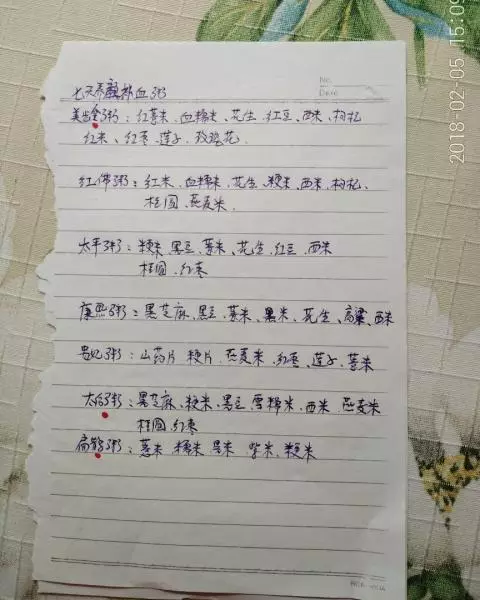 No.
Date
2018-02-05 15:09
七天养颜补血粥
美龄粥：红薏米、血糯米、花生、红豆、西米、枸杞
红米、红枣、莲子、玫瑰花
红伟粥：红米、血糯米、花生、粳米、西米、枸杞、
桂圆、燕麦米
太平粥：粳米、黑豆、薏米、花生、红豆、西米
桂圆、红枣
康熙粥：黑芝麻、黑豆、薏米、黑米、花生、高粱、西米
贵妃粥：山药片、粳片、燕麦米、红枣、莲子、薏米
太后粥：黑芝麻、粳米、黑豆、雪糯米、西米、燕麦米
桂圆、红枣
扁鹊粥：薏米、糯米、黑米、紫米、粳米